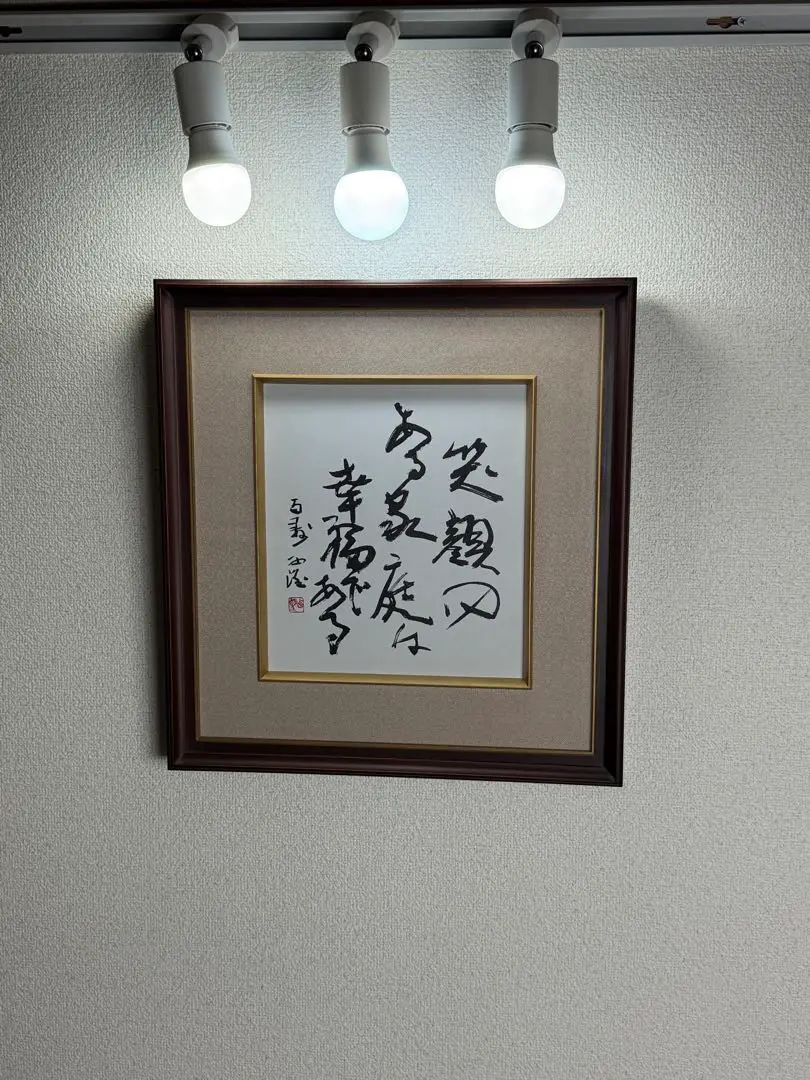 笑顔の
ある家庭は
幸福である
百寿